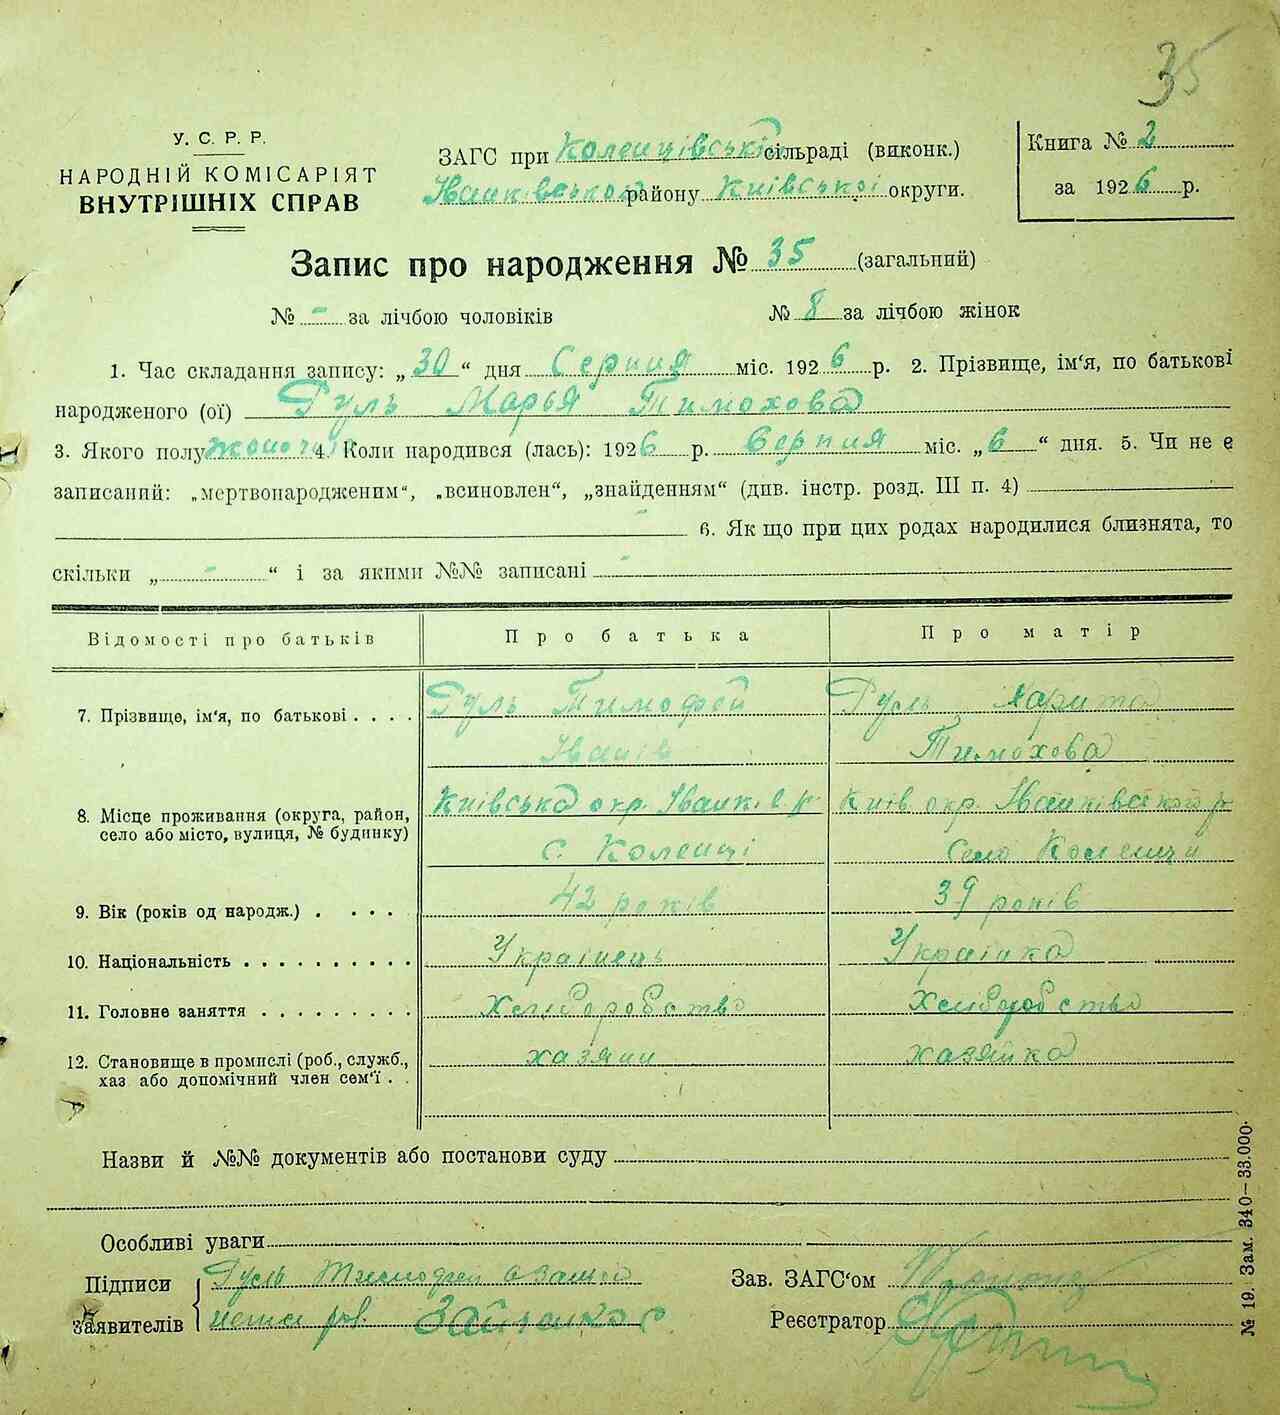 35
У. С. Р. Р.
НАРОДНІЙ КОМІСАРІЯТ
ВНУТРІШНІХ СПРАВ
ЗАГС при Коленцівській сільраді (виконк.)
Іванківського району Київської округи.
Книга № 2
за 1926 р.
Запис про народження № 35 (загальний)
№ - за лічбою чоловіків № 8 за лічбою жінок
1. Час складання запису: „30“ дня Серпня міс. 1926 р. 2. Прізвище, ім'я, по батькові
народженого (ої) Гуль Марья Тимохова
3. Якого полу жоночу 4. Коли народився (лась): 1926 р. Серпня міс. „6“ дня. 5. Чи не є
записаний: „мертвонародженим“, „всиновлен“, „знайденням“ (див. інстр. розд. III п. 4)
- 6. Як що при цих родах народилися близнята, то
скільки „ - “ і за якими №№ записані -
Відомості про батьків Про батька Про матір
7. Прізвище, ім'я, по батькові . . . . Гуль Тимофей Гусль Харита
Іванів Тимохова
8. Місце проживання (округа, район, Київська окр. Іванків р Київ. окр. Іванківського р
село або місто, вулиця, № будинку) с. Коленці село Коленци
9. Вік (років од народж.) . . . . . 42 років 39 років
10. Національність . . . . . . . . . . Українець Українка
11. Головне заняття . . . . . . . . . Хеліборобство Хеліборобство
12. Становище в промислі (роб., служб., хазяин хазяйка
хаз або допомічний член сем'ї . .
Назви й №№ документів або постанови суду
Особливі уваги
Підписи Гусль Тимофей
заявителів
Зав. ЗАГС'ом
Реєстратор
№ 19. Зам. 340—33.000.